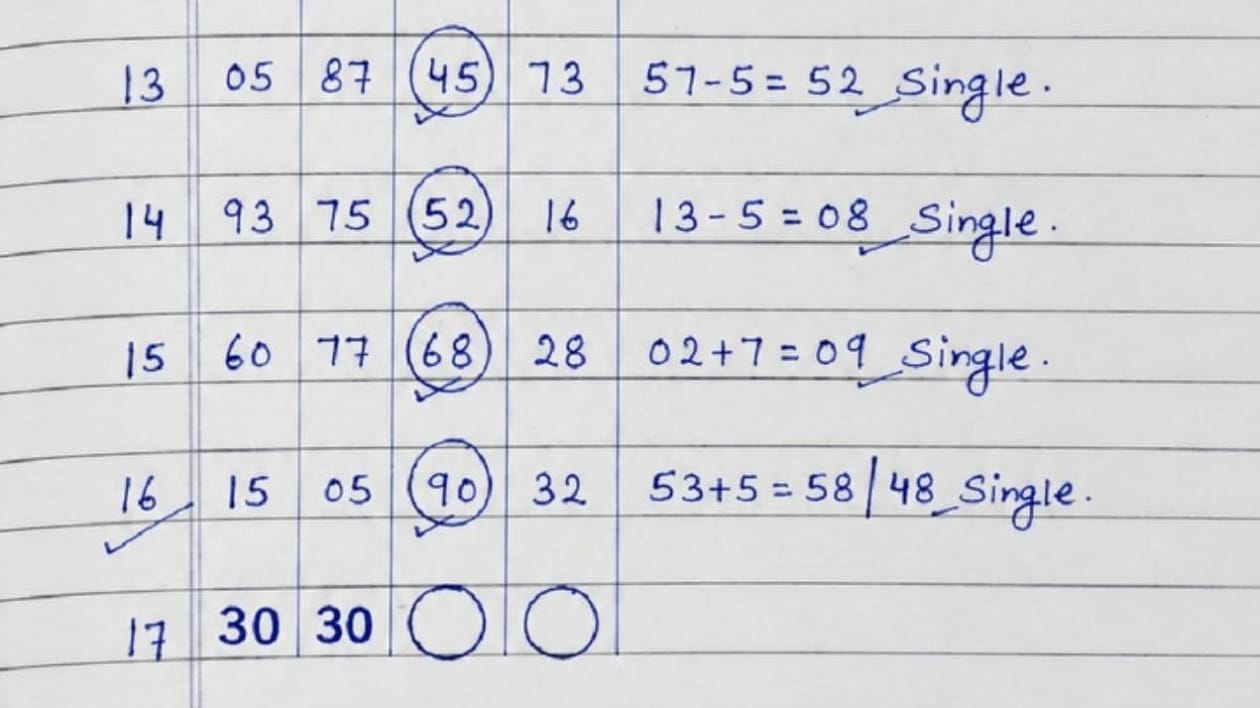 13 05 87 45 73 57-5= 52 Single.
14 93 75 52 16 13-5 = 08 Single.
15 60 77 68 28 02+7 = 09 Single.
16 15 05 90 32 53+5 = 58/48 Single.
17 30 30